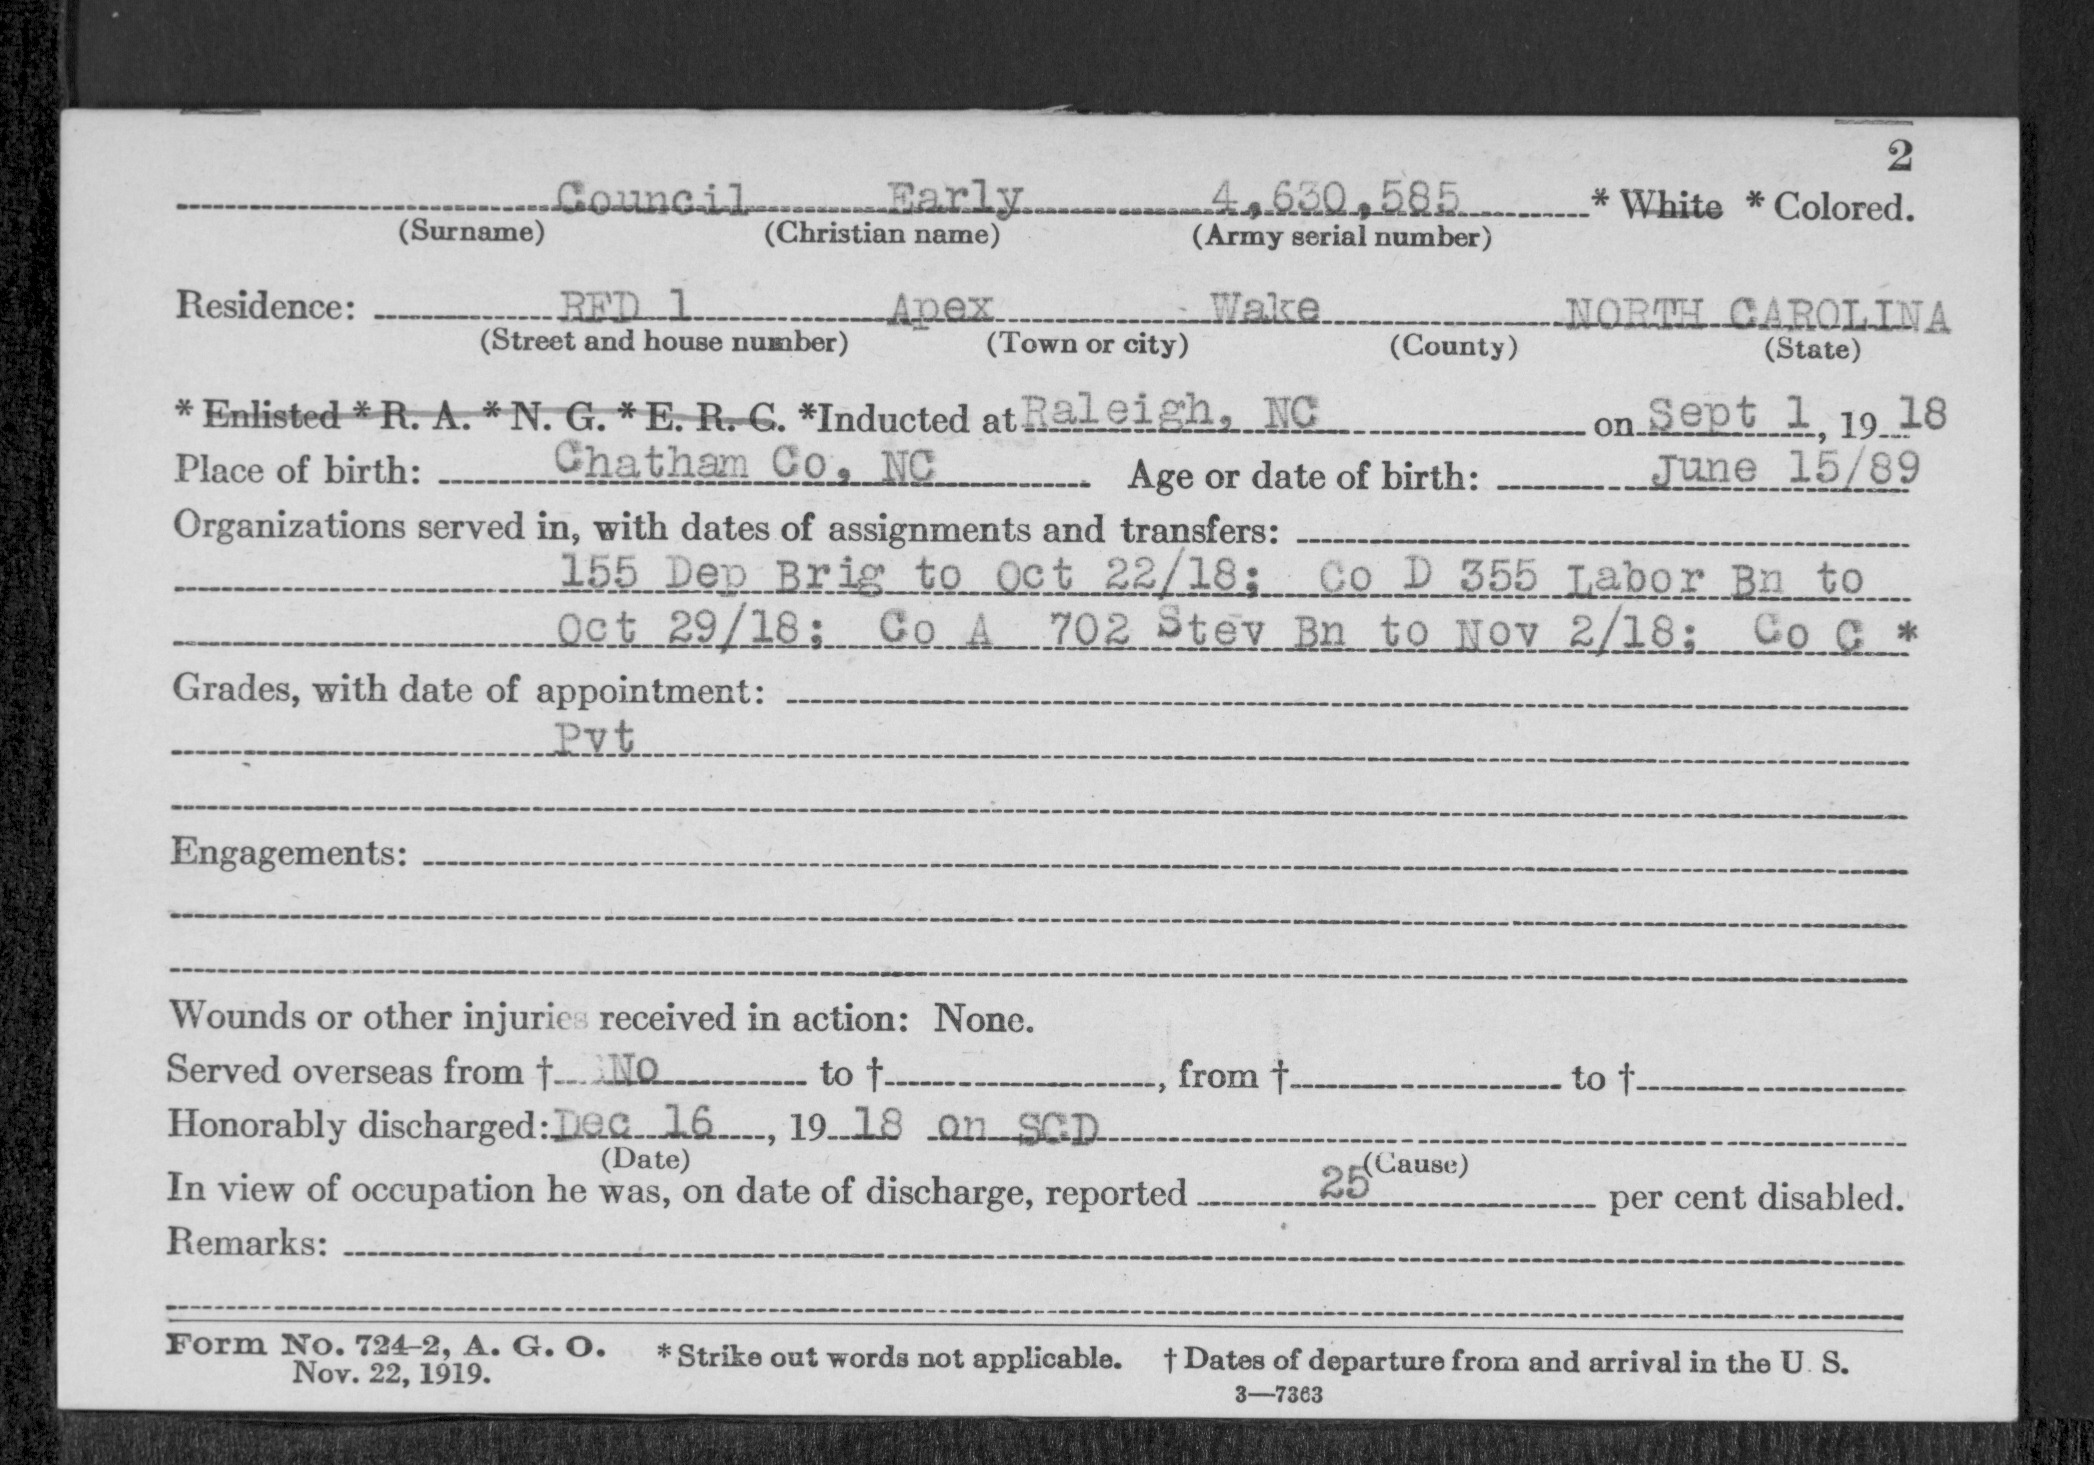 2
Council Early 4,630,585 * White * Colored.
(Surname) (Christian name) (Army serial number)
Residence: RFD 1 Apex Wake NORTH CAROLINA
(Street and house number) (Town or city) (County) (State)
* Enlisted * R. A. * N. G. * E. R. C. *Inducted at Raleigh, NC on Sept 1, 19 18
Place of birth: Chatham Co, NC Age or date of birth: June 15/89
Organizations served in, with dates of assignments and transfers:
155 Dep Brig to Oct 22/18; Co D 355 Labor Bn to
Oct 29/18; Co A 702 Stev Bn to Nov 2/18; Co C *
Grades, with date of appointment:
Pvt
Engagements:
Wounds or other injuries received in action: None.
Served overseas from † No to †, from † to †
Honorably discharged: Dec 16, 19 18 on SCD
(Date) (Cause)
In view of occupation he was, on date of discharge, reported 25 per cent disabled.
Remarks:
Form No. 724-2, A. G. O. * Strike out words not applicable. † Dates of departure from and arrival in the U. S.
Nov. 22, 1919. 3—7363